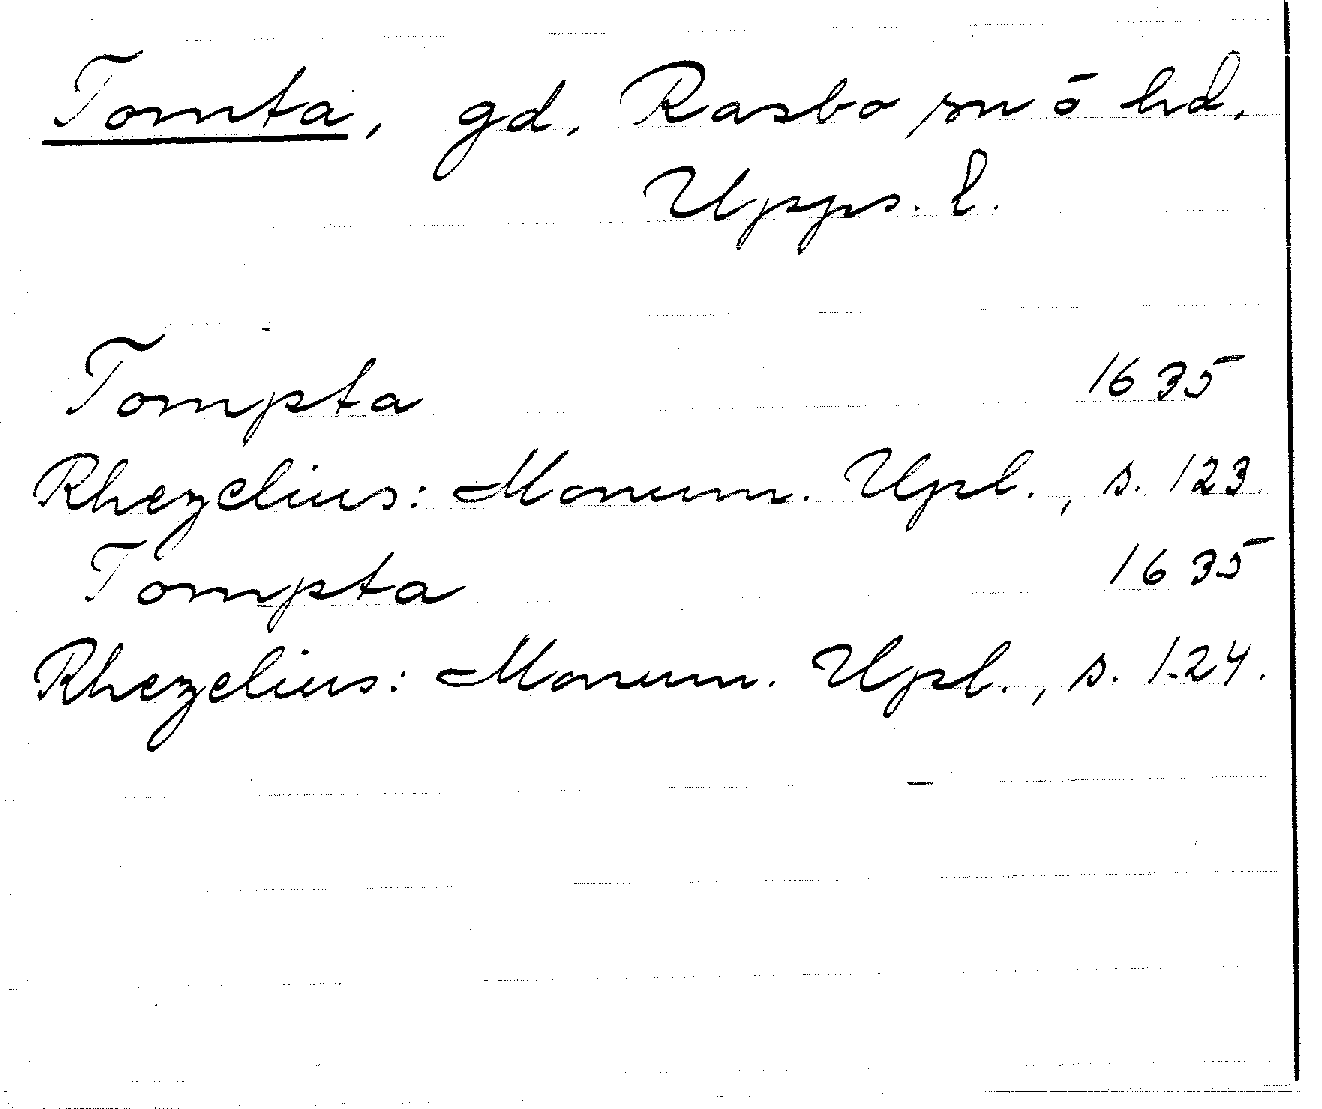 Tomta, gd. Rasbo sn ō hd.
Upps. l.
Tompta 1635
Rhezelius: Monum. Upl., s. 123
Tompta 1635
Rhezelius: Monum. Upl., s. 124.